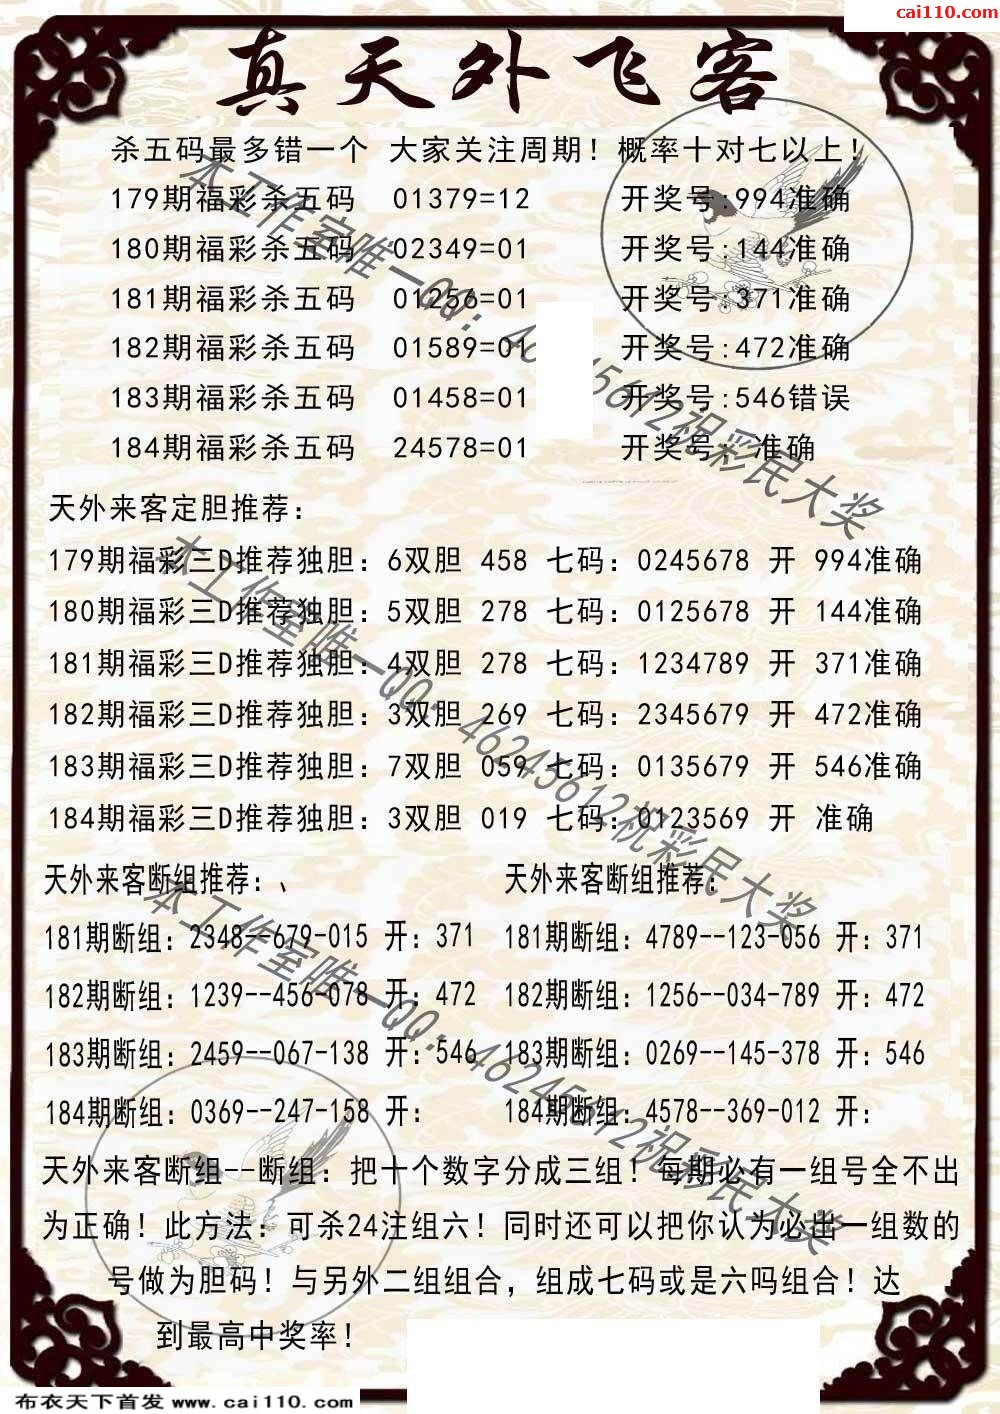 cai110.com
真天外飞客
杀五码最多错一个 大家关注周期！概率十对七以上！
179期福彩杀五码 01379=12 开奖号:994准确
180期福彩杀五码 02349=01 开奖号:144准确
181期福彩杀五码 01256=01 开奖号:371准确
182期福彩杀五码 01589=01 开奖号:472准确
183期福彩杀五码 01458=01 开奖号:546错误
184期福彩杀五码 24578=01 开奖号: 准确
本工作室唯一QQ: 46245612祝彩民大奖
天外来客定胆推荐：
179期福彩三D推荐独胆：6双胆 458 七码：0245678 开 994准确
180期福彩三D推荐独胆：5双胆 278 七码：0125678 开 144准确
181期福彩三D推荐独胆：4双胆 278 七码：1234789 开 371准确
182期福彩三D推荐独胆：3双胆 269 七码：2345679 开 472准确
183期福彩三D推荐独胆：7双胆 059 七码：0135679 开 546准确
184期福彩三D推荐独胆：3双胆 019 七码：0123569 开 准确
本工作室唯一QQ: 46245612祝彩民大奖
天外来客断组推荐：、 天外来客断组推荐：
181期断组：2348--679-015 开：371 181期断组：4789--123-056 开：371
182期断组：1239--456-078 开：472 182期断组：1256--034-789 开：472
183期断组：2459--067-138 开：546 183期断组：0269--145-378 开：546
184期断组：0369--247-158 开： 184期断组：4578--369-012 开：
本工作室唯一QQ: 46245612祝彩民大奖
天外来客断组--断组：把十个数字分成三组！每期必有一组号全不出
为正确！此方法：可杀24注组六！同时还可以把你认为必出一组数的
号做为胆码！与另外二组组合，组成七码或是六吗组合！达
到最高中奖率！
布衣天下首发 www.cai110.com